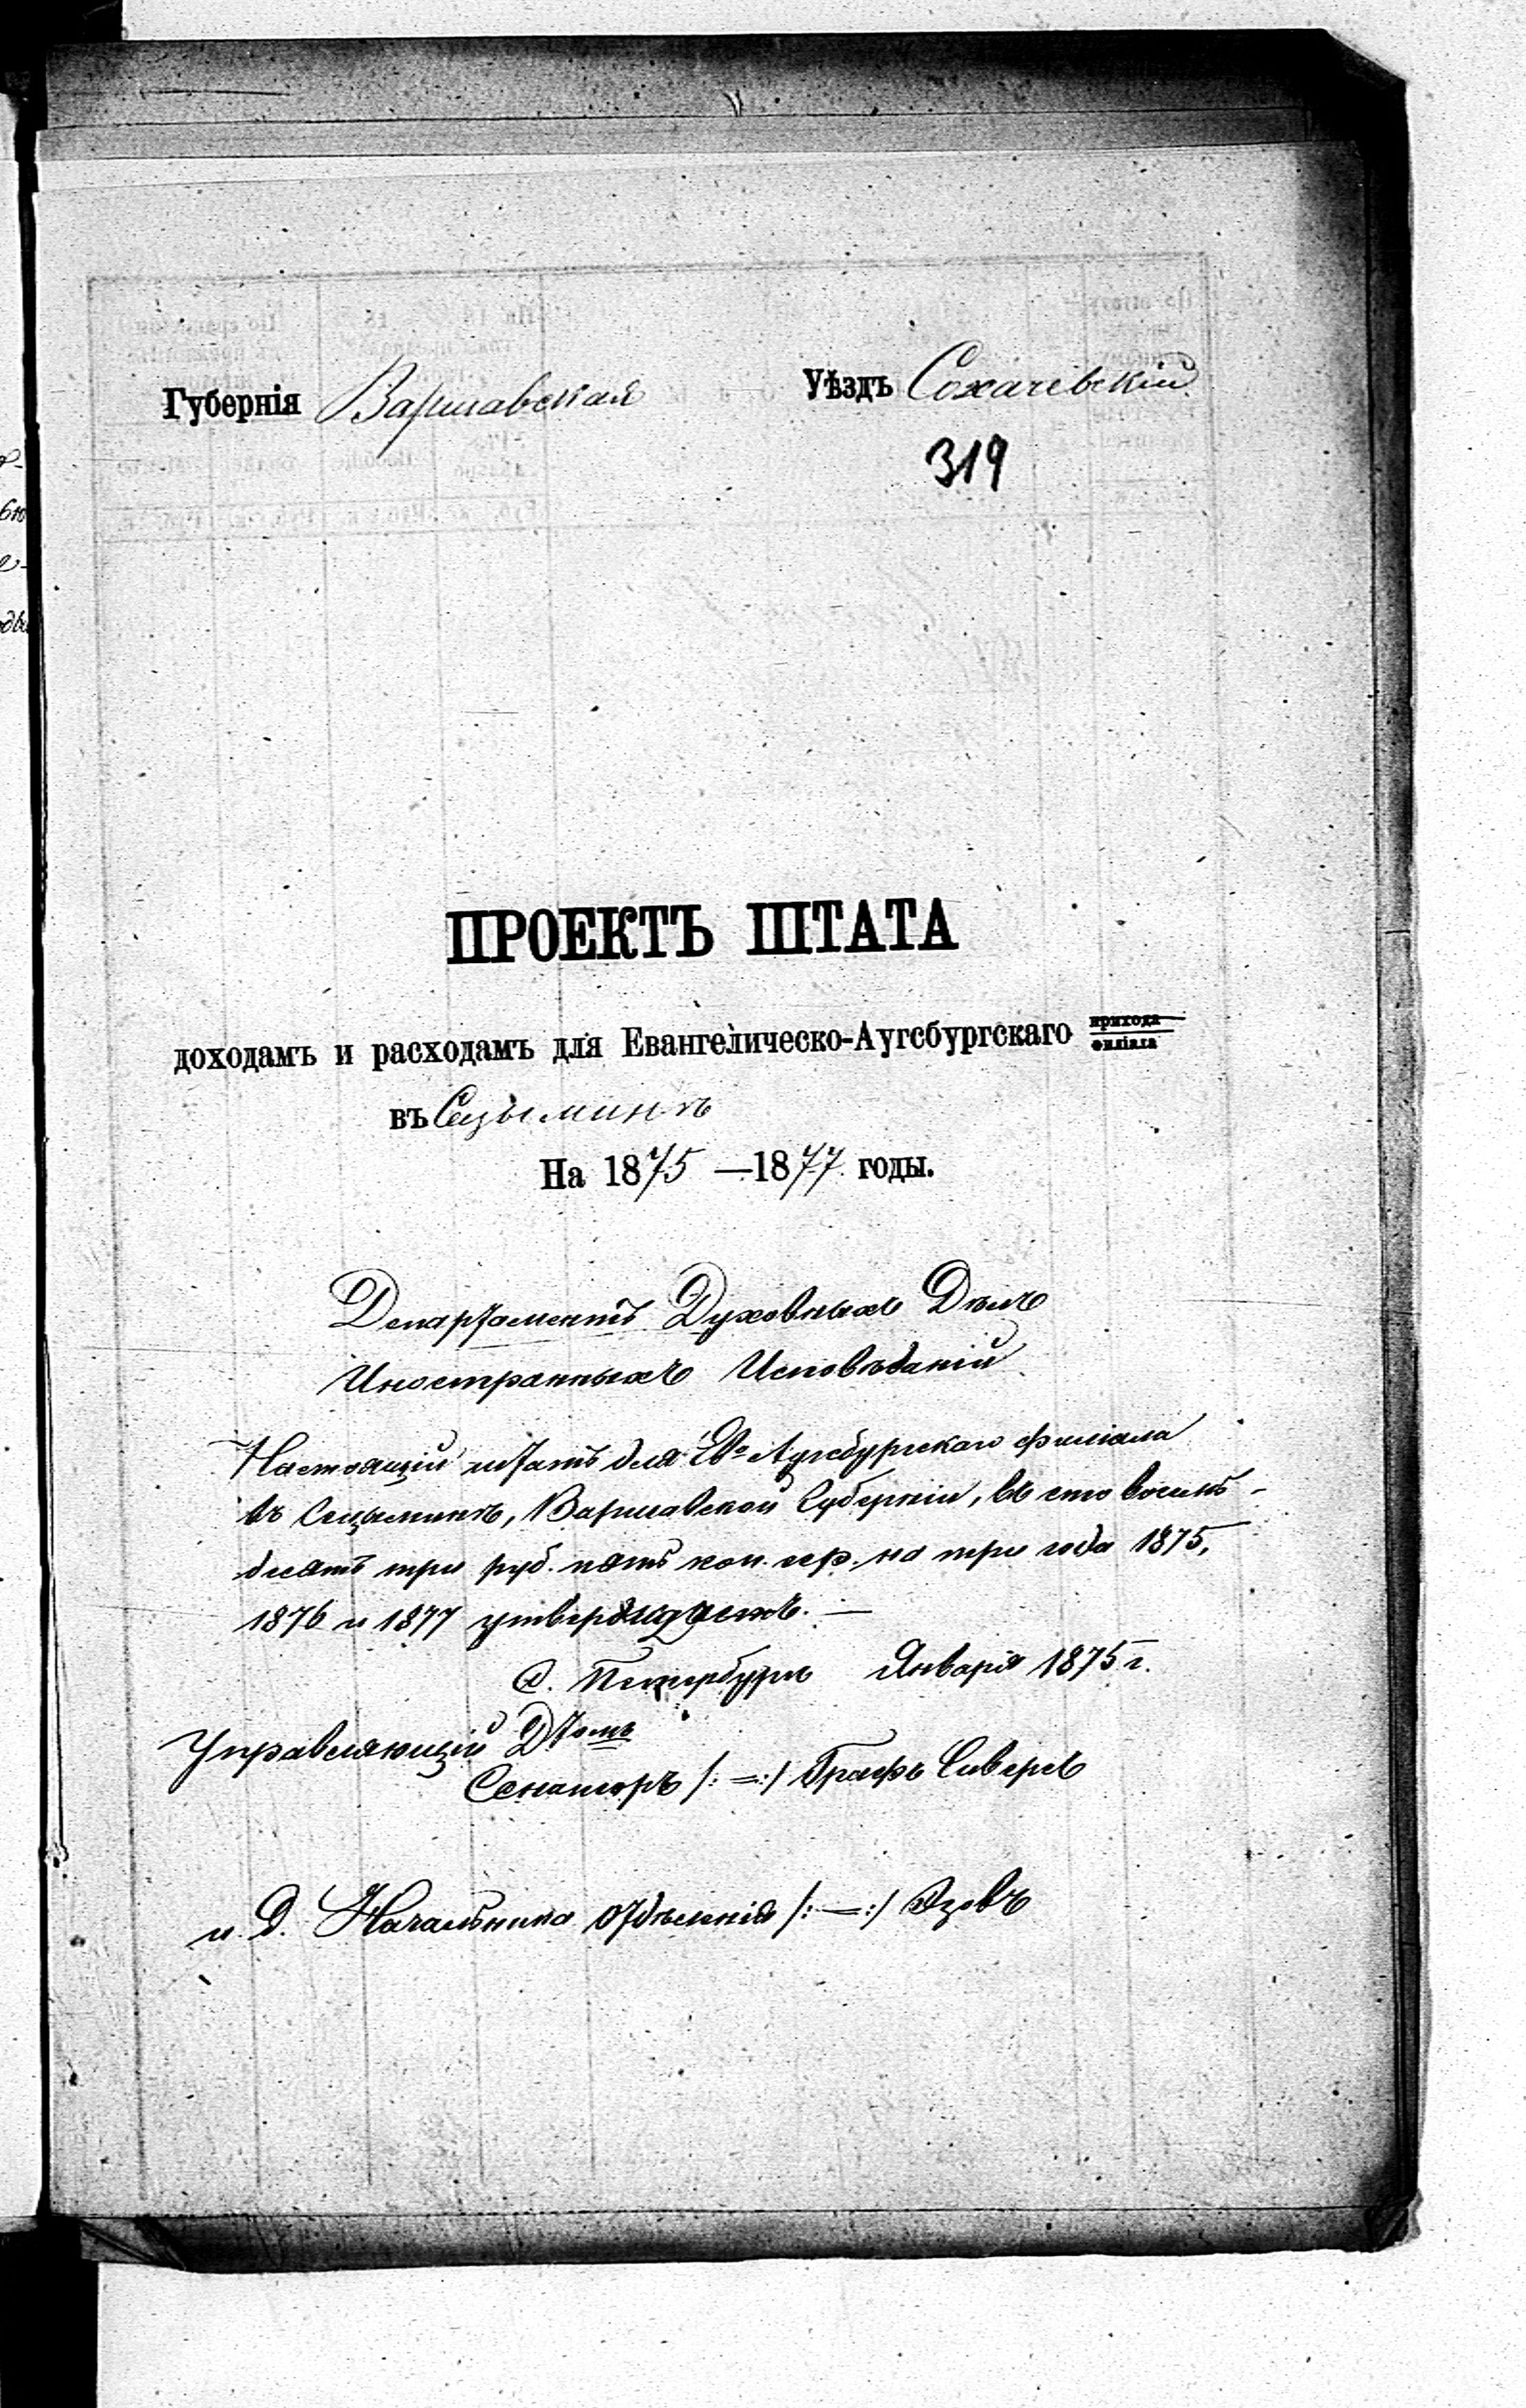 Губернія Варшавская Уѣздъ Сохачевскій
319
ПРОЕКТЪ ШТАТА
доходамъ и расходамъ для Евангелическо-Аугсбургскаго прихода филіала
въ Сецыминѣ
На 1875 —1877 годы.
Департаментъ Духовныхъ Дѣлъ
Иностранныхъ Исповѣданій
Настоящій штатъ для Ев⁰ Аугсбургскаго филіала
въ Сецыминѣ, Варшавской Губерніи, въ сто восемь-
десятъ три руб. пять коп. сер. на три года 1875,
1876 и 1877 утверждаетъ. —
С. Петербургъ Января 1875 г.
Управляющій Дтомъ
Сенаторъ /: =:/ Графъ Сиверсъ
и. д. Начальника Отдѣленія /: =:/